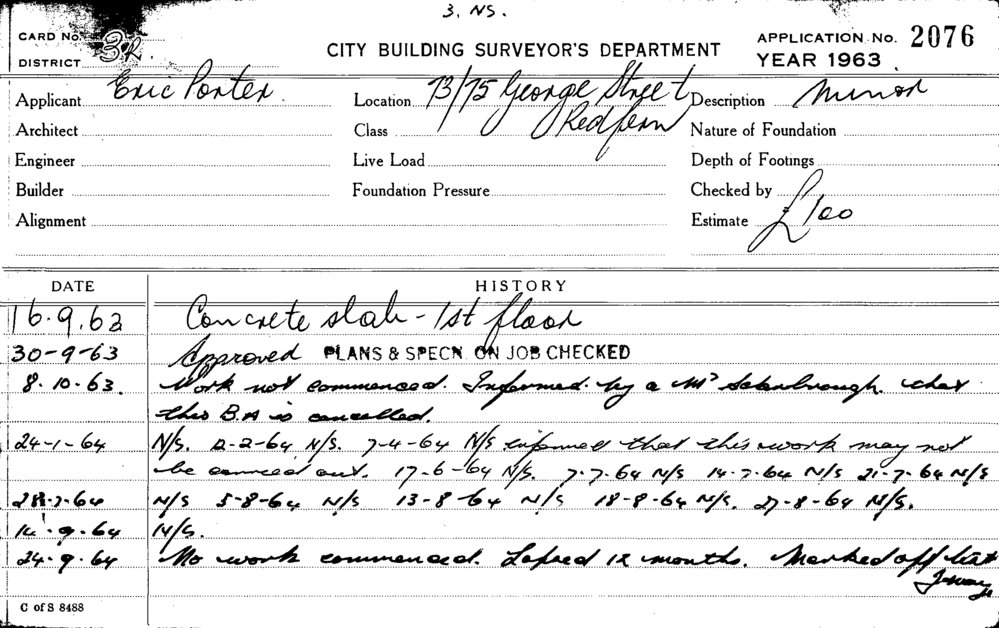 3. NS.
CARD No. 3R
DISTRICT
CITY BUILDING SURVEYOR'S DEPARTMENT
APPLICATION No. 2076
YEAR 1963
Applicant Eric Porter
Location 73/75 George Street
Redfern
Description Minor
Architect
Class
Nature of Foundation
Engineer
Live Load
Depth of Footings
Builder
Foundation Pressure
Checked by
Alignment
Estimate £100
DATE HISTORY
16.9.63 Concrete slab - 1st floor
30-9-63 Approved PLANS & SPECN. ON JOB CHECKED
8.10.63. Work not commenced. Informed by a Mr that
this B.A is cancelled.
24-1-64 N/S. 2-2-64 N/S. 7-4-64 N/S informed that this work may not
be carried out. 17-6-64 N/S. 7.7.64 N/S 14.7.64 N/S 21-7-64 N/S
28.7.64 N/S 5-8-64 N/S 13-8-64 N/S 18-8-64 N/S. 27-8-64 N/S.
14.9.64 N/S.
24.9.64 No work commenced. Lapsed 12 months. Marked off list
C of S 8488